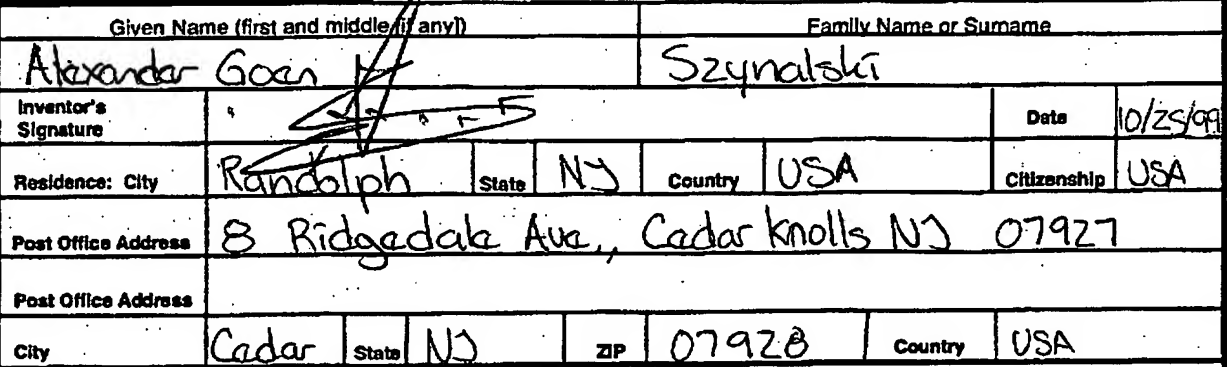 Given Name (first and middle [if any]) Family Name or Surname
Alexander Goen Szynalski
Inventor's Signature Date 10/25/99
Residence: City Randolph State NJ Country USA Citizenship USA
Post Office Address 8 Ridgedale Ave., Cedar Knolls NJ 07927
Post Office Address
City Cedar State NJ ZIP 07928 Country USA